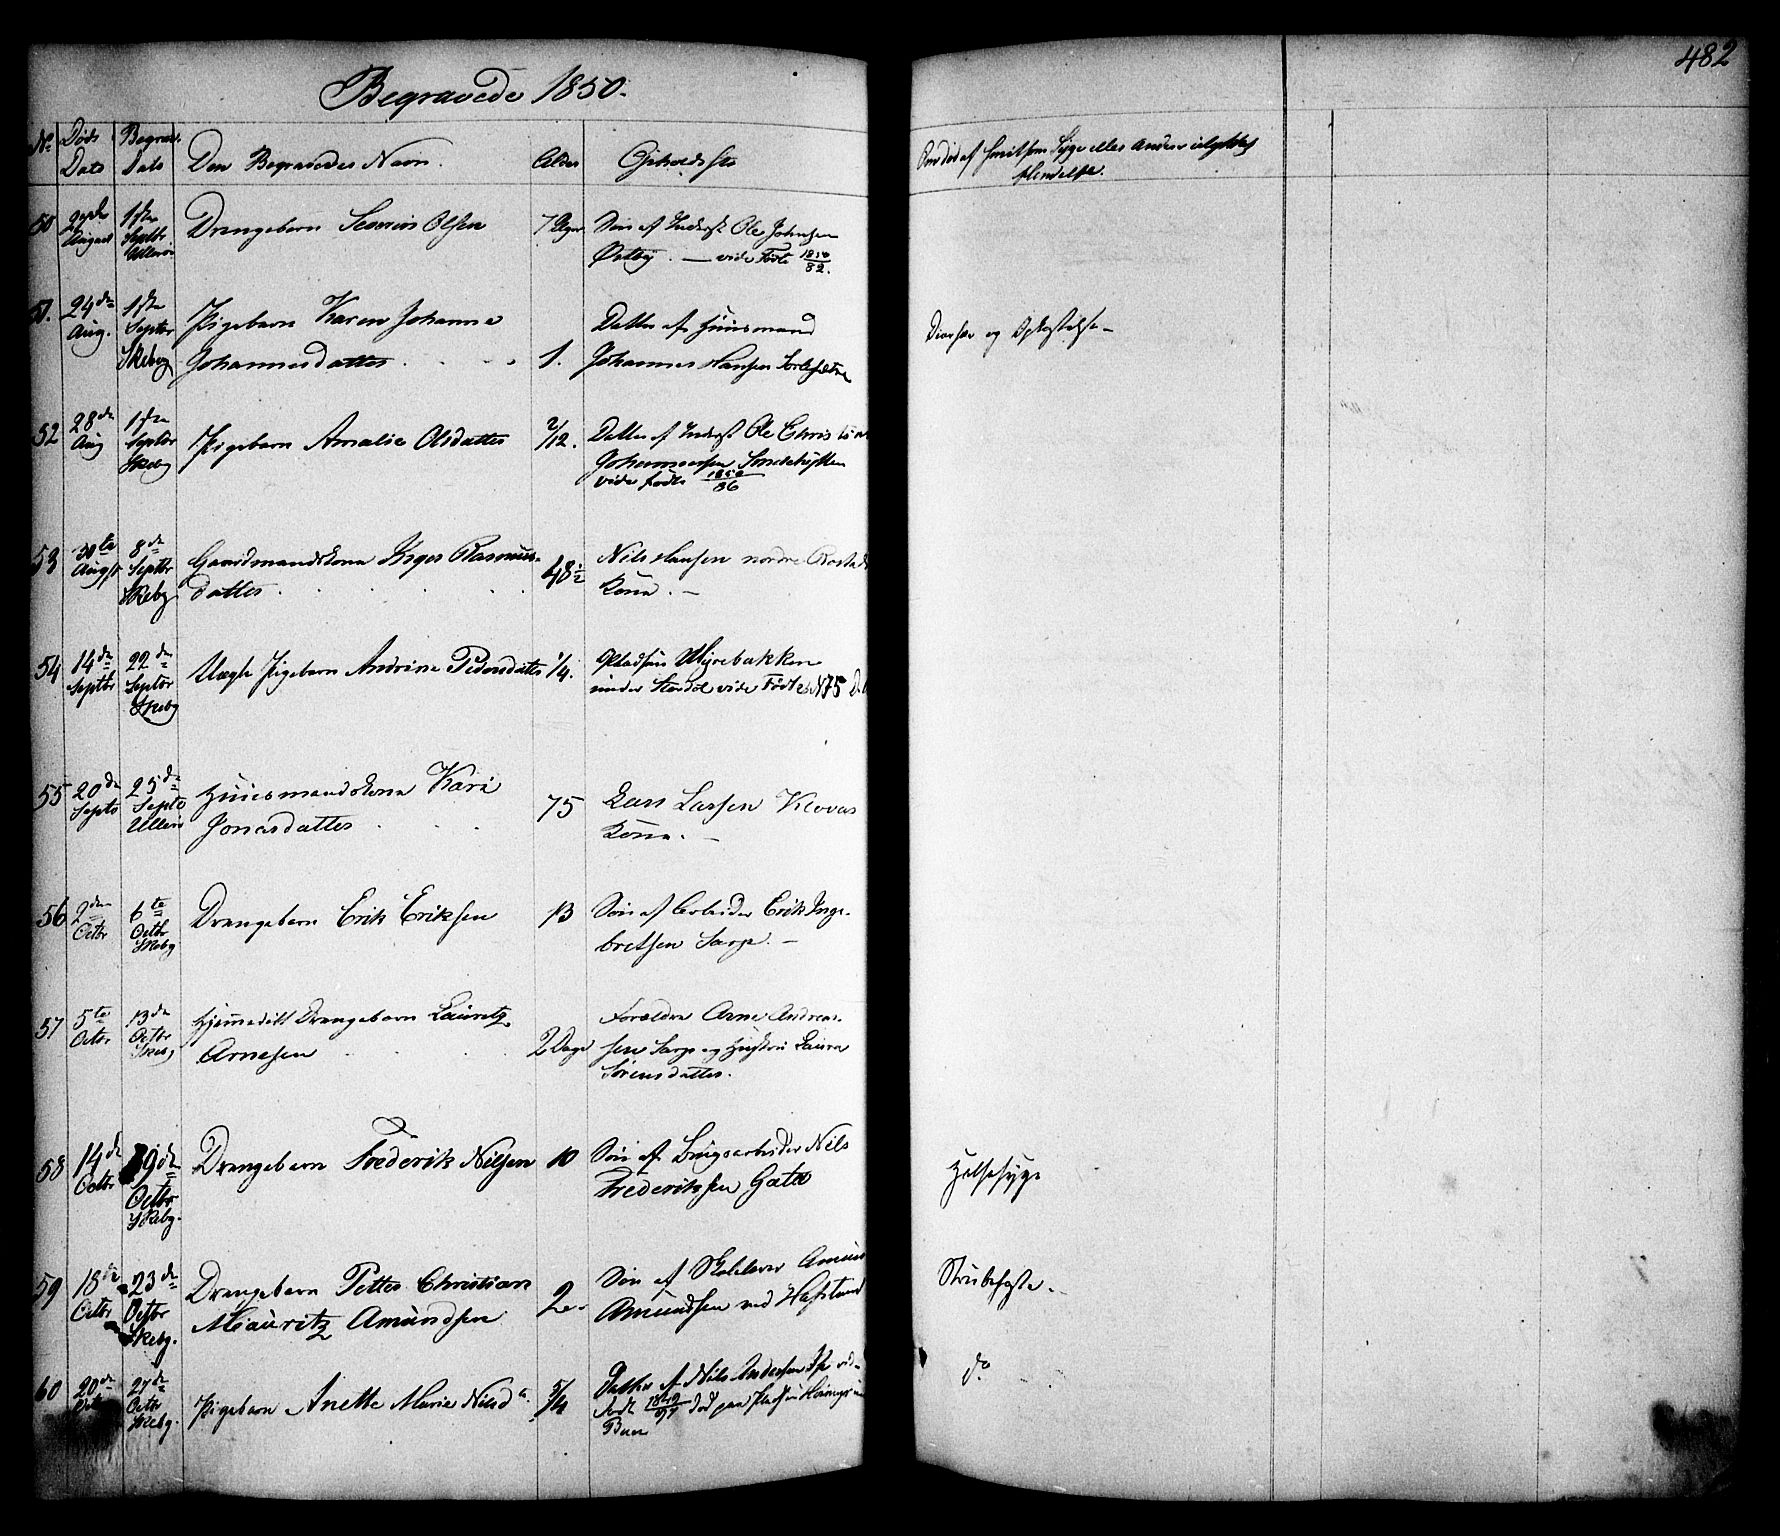 482
Begravede 1850.
No Døds Dato Begrav. Dato Den Begravedes Navn. Alder Opholdssted
Om død af smitsom Syge eller anden ulykkelig
Hendelse.
50 27de August 1ste Septbr Ullerøe Drengebarn Severin Olsen 7 Uger Søn af Inderst Ole Johnsen
Østby. — vide Fødte 1850/82.
51. 24de Aug. 1ste Septbr Skebg Pigebarn Karen Johanne Datter af Huusmand
Johannesdatter . . . 1. Johannes Hansen
Diarhæ og Opkastelse —
52 28de Aug 1ste Septbr Skebg Pigebarn Amalie Olsdatter 2/12. Datter af Inderst Ole Christian
Johannessen
vide Fødte 1850/86
53 30te Augst 8de Septbr Skebg Gaardmandskone Inger Rasmus-
datter . . . . 48½ Nils Hansen nordre
Kone. —
54 14de Septbr 22de Septbr Skebg Uægte Pigebarn Andrine Pedersdatter ¼. Pladsen Myrebakken
under vide Fødte N 75
55 20de Septb 25de Septb Ullerøe Huusmandskone Kari
Jonasdatter . . . 75 Lars Larsen
Kone. —
56 2den Octbr 6te Octbr Skebg Drengebarn Erik Eriksen 13 Søn af Arbeider Erik Inge-
bretsen Sarp. —
57 5te Octbr 13de Octbr Skebg Hjemmedøbt Drengebarn Lauritz
Arnesen . . . 2 Dage Forældre Arne Andreas-
sen Sarp og Hustru Laura
Sørensdatter.
58 14de Octbr 19de Octbr Skebg. Drengebarn Frederik Nilsen 10 Søn af Brugsarbeider Nils
Frederikssen Gaten
Halssyge
59 18de Octbr 23de Octbr Skebg. Drengebarn Petter Christian
Mauritz Amundsen 2 Søn af Skolelærer Amund
Amundsen ved Hafslund
Strubehoste. —
60 20de Octbr 27de Octbr Skebg. Pigebarn Anette Marie Nilsda. 5/4 Datter af Nils Andersen
født 1849/97 død paa Pladsen
do